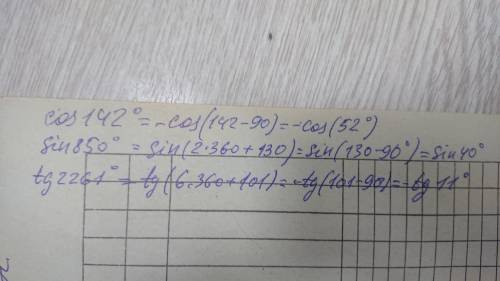 cos142° = -cos(142-90) = -cos(52°)
sin850° = sin(2·360+130) = sin(130-90°) = sin40°
tg2261° = tg(6·360+101) = -tg(101-90) = -tg11°